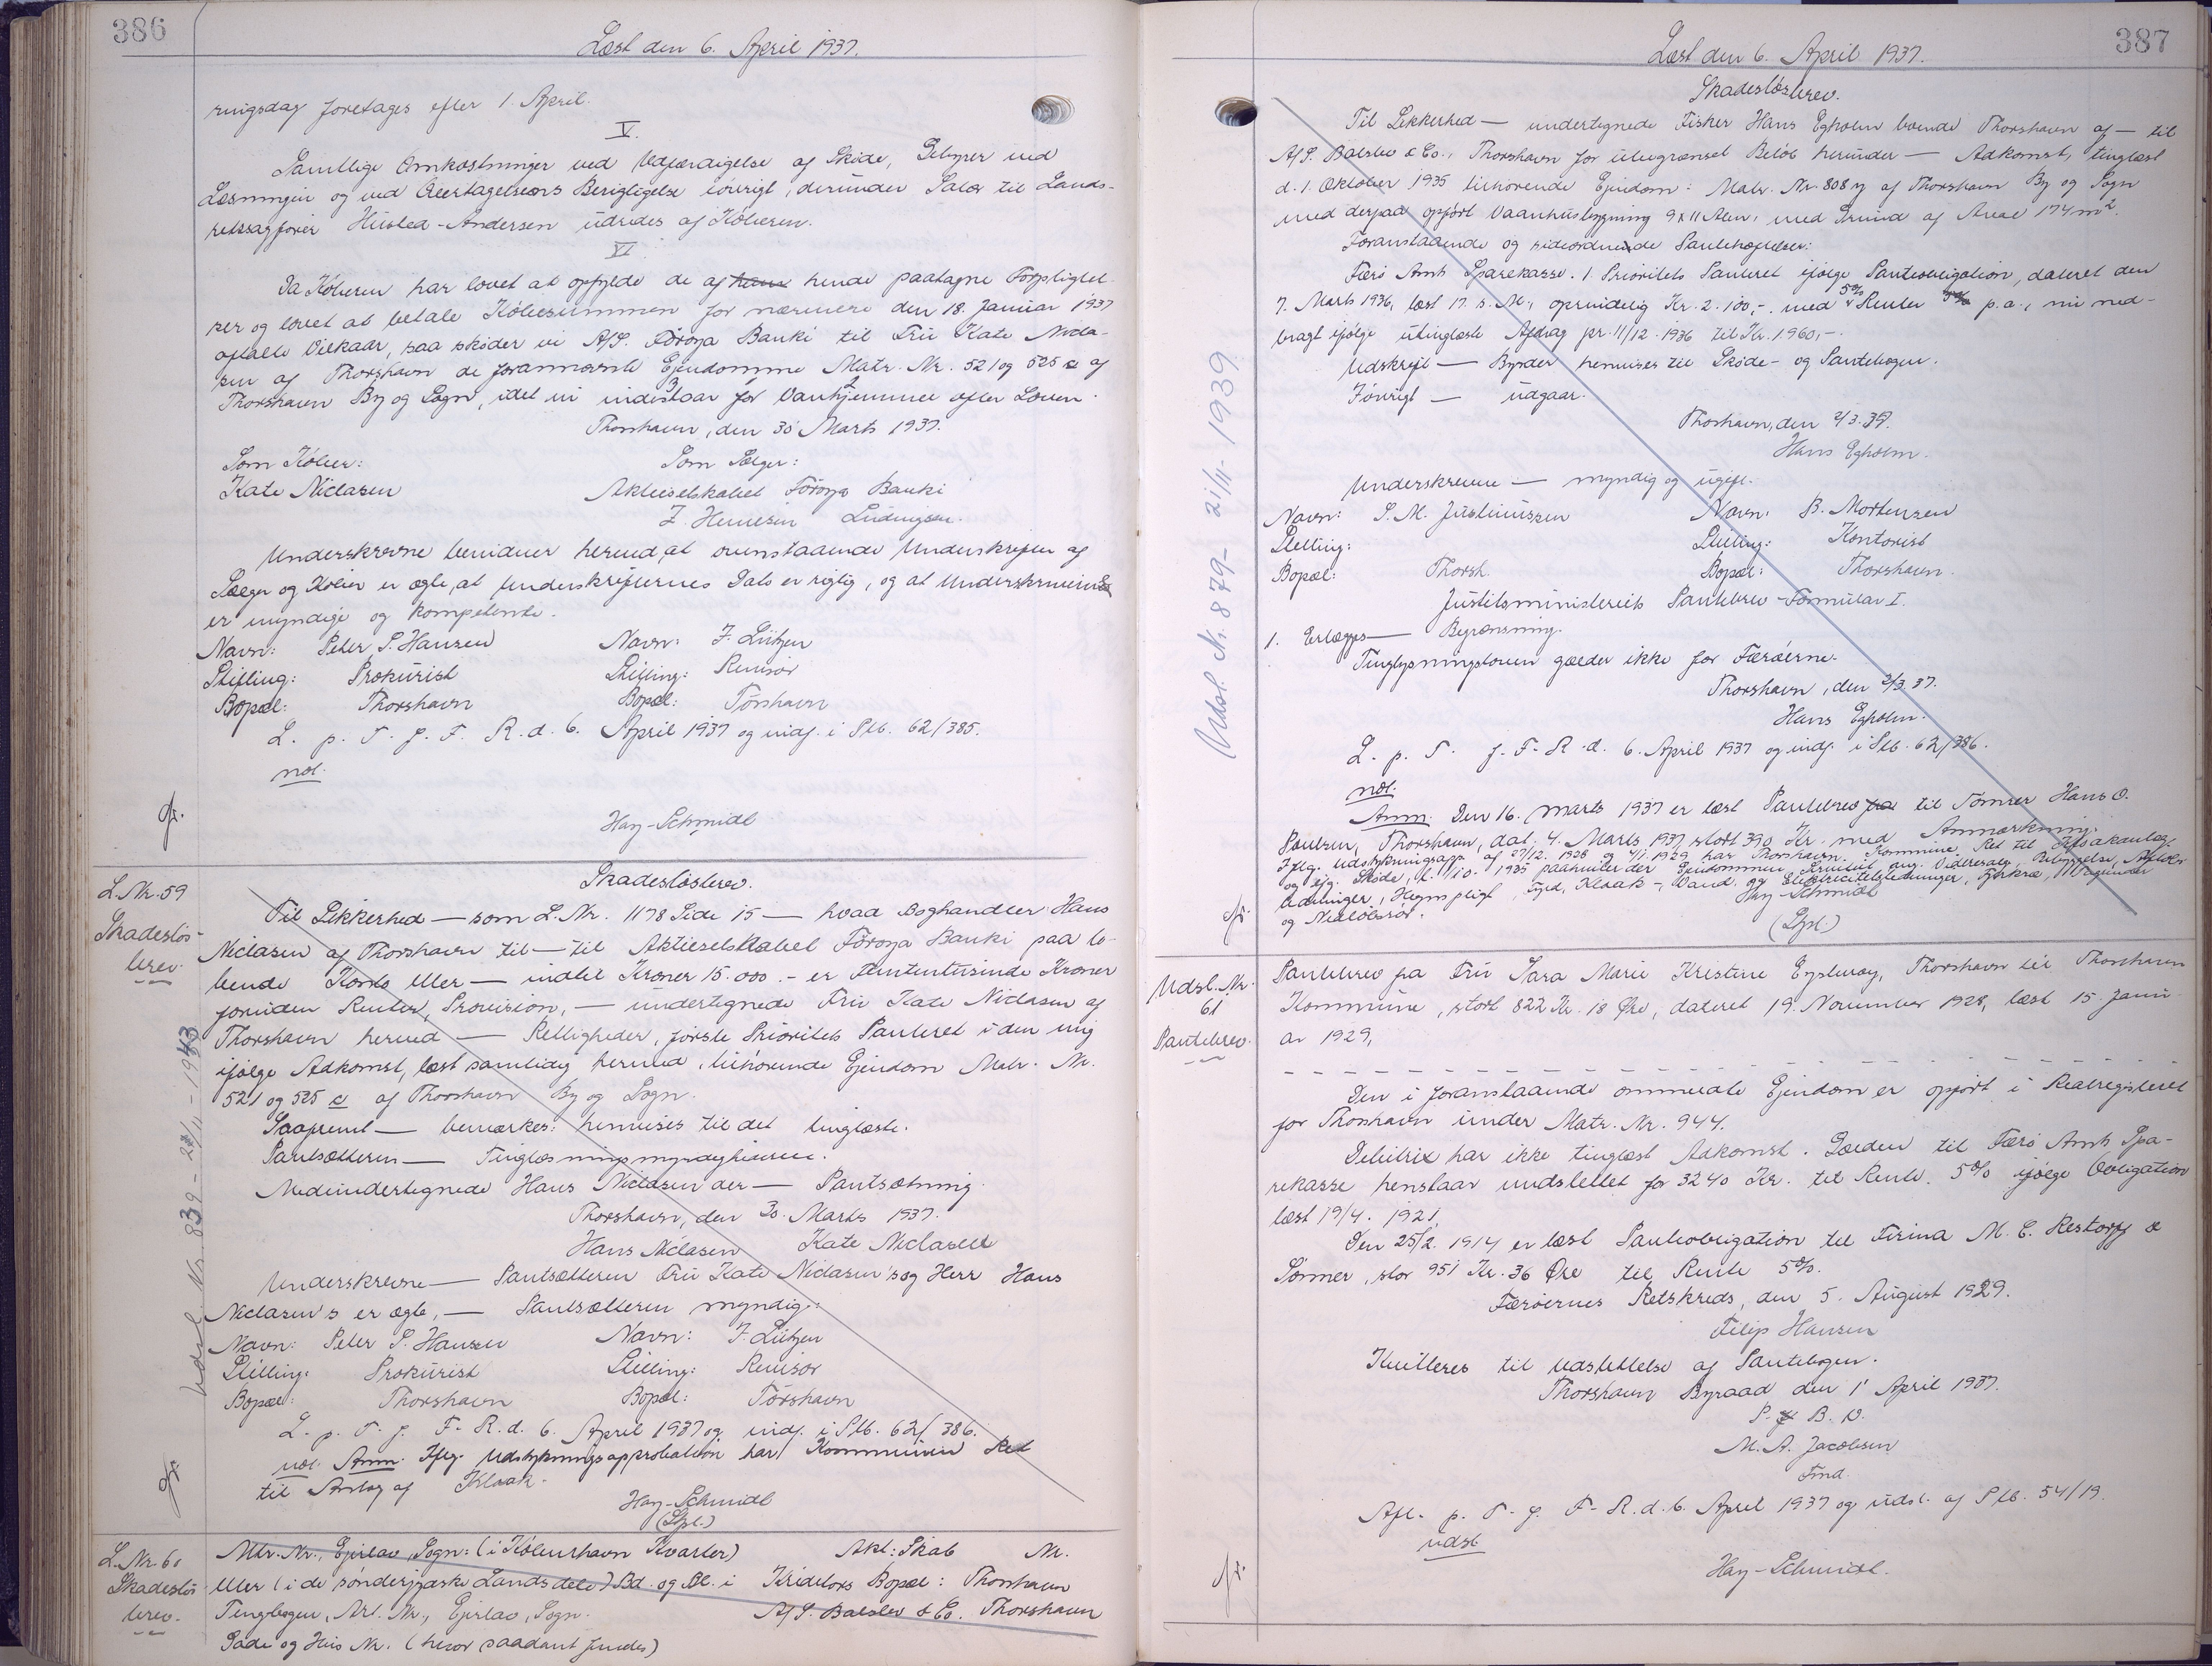 386
Læst den 6. April 1937.
ringsdag foretages efter 1. April.
V.
Samtlige Omkostninger ved Udfærdigelse af Skøde, Gebyrer ved
Læsningen og ved Overtagelsens Berigtigelse iøvrigt, derunder Salær til Lands-
retssagfører Husted-Andersen udredes af Køberen.
VI
Da Køberen har lovet at opfylde de af hans hende paatagne Forpligtel-
ser og lovet at betale Købesummen for nærmere den 18. Januar 1937
aftalte Vilkaar, saa skøder vi A/S. Føroya Banki til Fru Kate Nicla-
sen af Thorshavn de forannævnte Ejendomme Matr. Nr. 521 og 525 c af
Thorshavn By og Sogn, idet vi indestaar for Vanhjemmel efter Loven.
Thorshavn, den 30 Marts 1937.
Som Køber: Som Sælger:
Kate Niclasen Aktieselskabet Føroya Banki
Z. Heinesen Ludvigsen.
Underskrevne bevidner herved, at ovenstaaende Underskrifter af
Sælger og Køber er ægte, at Underskrifternes Dato er rigtig, og at Underskriverne
er myndige og kompetente.
Navn: Peter S. Hansen Navn: J. Lützen
Stilling: Prokurist Stilling: Revisor
Bopæl: Thorshavn Bopæl: Tórshavn
L. p. T. f. F. R. d. 6. April 1937 og indf. i Ptb. 62/385.
ndl.
Hay-Schmidt
L. Nr. 59
Skadesløs-
brev.
Udsl. Nr. 839 - 27/11 - 1943
Skadesløsbrev.
Til Sikkerhed — som L. Nr. 1178 Side 15 — hvad Boghandler Hans
Niclasen af Thorshavn til — til Aktieselskabet Føroya Banki paa lø-
bende Konto eller — indtil Kroner 15.000.- er Femtentusinde Kroner
foruden Renter, Provision, — undertegnede Fru Kate Niclasen af
Thorshavn herved — Rettigheder, første Prioritets Panteret i den mig
ifølge Adkomst, læst samtidig hermed, tilhørende Ejendom Matr. Nr.
521 og 525 c af Thorshavn By og Sogn.
Saafremt — bemærkes: henvises til det tinglæste.
Pantsætteren — Tinglæsningsmyndighederne.
Medundertegnede Hans Niclasen der — Pantsætning.
Thorshavn, den 30. Marts 1937.
Hans Niclasen Kate Niclasen
Underskrevne — Pantsætteren Fru Kate Niclasen's og Herr Hans
Niclasen's er ægte, — Pantsætteren myndig:
Navn: Peter S. Hansen Navn: J. Lützen
Stilling: Prokurist Stilling: Revisor
Bopæl: Thorshavn Bopæl: Tórshavn
L. p. T. f. F. R. d. 6. April 1937 og indf. i Ptb. 62/386.
ndl. Anm. Iflg. Udstykningsapprobation har Kommunen Ret
til Anlæg af Kloak.
Hay-Schmidt
(Lgl.)
L. Nr. 60
Skadesløs
brev.
Mtr. Nr., Ejerlav, Sogn: (i København Kvarter) Akt: Skab Nr.
eller (i de sønderjydske Landsdele) Bd. og Bl. i Kreditors Bopæl: Thorshavn
Tingbogen, Art. Nr., Ejerlav, Sogn. A/S. Balslev & Co. Thorshavn
Gade og Hus Nr. (hvor saadant findes)
387
Læst den 6. April 1937.
Skadesløsbrev.
Til Sikkerhed — undertegnede Fisker Hans Egholm boende Thorshavn af — til
A/S. Balslev & Co., Thorshavn for ubegrænset Beløb herunder — Adkomst, tinglæst
d. 1. Oktober 1935 tilhørende Ejendom: Matr. Nr. 808 y af Thorshavn By og Sogn
med derpaa opført Vaanhusbygning 9 x 11 Alen, med Grund af Areal 174 m².
Foranstaaende og sideordnede Pantehæftelser:
Færø Amts Sparekasse. 1. Prioritets Panteret ifølge Panteobligation, dateret den
7. Marts 1936, læst 17. s. M., oprindelig Kr. 2.100,-. med 5% Renter p.a., nu ned-
bragt ifølge utinglæste Afdrag pr. 11/12 - 1936 til Kr. 1.960,-.
Udskrift — Byrder henvises til Skøde- og Pantebogen.
Iøvrigt — udgaar.
Thorshavn, den 2/3. 37.
Hans Egholm.
Underskrevne — myndig og ugift.
Navn: S. M. Justinussen Navn: B. Mortensen
Stilling: Stilling: Kontorist
Bopæl: Thorsh. Bopæl: Thorshavn.
Justitsministeriets Pantebrev-Formular I.
1. Erlægges — Begrænsning.
Tinglysningsloven gælder ikke for Færøerne.
Thorshavn, den 2/3. 37.
Hans Egholm.
L. p. T. f. F. R. d. 6. April 1937 og indf. i Ptb. 62/386.
ndl.
Anm. Den 16. Marts 1937 er læst Pantebrev fra til Tømrer Hans O.
Poulsen, Thorshavn, dat. 4. Marts 1937, stort 390 Kr. med Anmærkning:
Iflg. Udstykningsapp. af 27/12. 1928 og 4/1. 1929 har Thorshavn Kommune Ret til Kloakanlæg
og iflg. Skøde, l. 1/10. 1935 paahviler der Ejendommen Servitut ang. Videresalg, Bebyggelse, Afløbs
ledninger, Hegnspligt, Fyrd, Kloak-, Vand- og Elektricitetsledninger, Tørkræ,
og Nedløbsrør.
Hay-Schmidt
(Lgl.)
Udsl. Nr. 879 - 21/11 - 1939
Udsl. Nr.
61
Pantebrev.
Pantebrev fra Fru Sara Marie Kristine Eysturoy, Thorshavn til Thorshavn
Kommune, stort 822 Kr. 18 Øre, dateret 19. November 1928, læst 15. Janu-
ar 1929,
Den i foranstaaende ommeldte Ejendom er opført i Realregisteret
for Thorshavn under Matr. Nr. 944.
Debitrix har ikke tinglæst Adkomst. Gælden til Færø Amts Spa-
rekasse henstaar uudslettet for 3240 Kr. til Rente 5% ifølge Obligation
læst 19/4. 1921.
Den 25/2. 1914 er læst Panteobligation til Firma M. C. Restorff &
Sønner, stor 951 Kr. 36 Øre til Rente 5%.
Færøernes Retskreds, den 5. August 1929.
Filip Hansen
Kvitteres til Udslettelse af Pantebogen.
Thorshavn Byraad den 1' April 1937.
P. B. V.
M. A. Jacobsen
Fmd.
Afl. p. T. f. F. R. d. 6. April 1937 og udsl. af Ptb. 54/19.
udsl.
Hay-Schmidt.